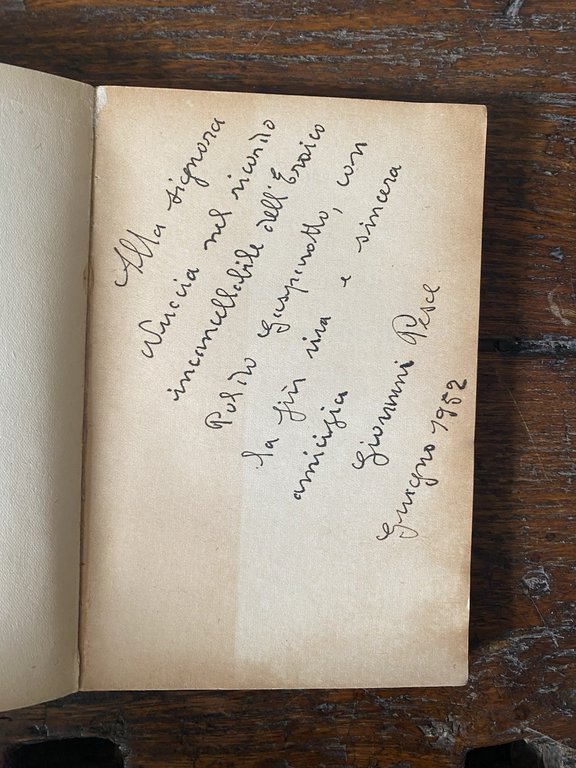 Alla signora
Nuccia nel ricordo
incancellabile dell'Eroico
Poldo Gasparotto, con
la più viva e sincera
amicizia
Giovanni Pesce
Giugno 1952